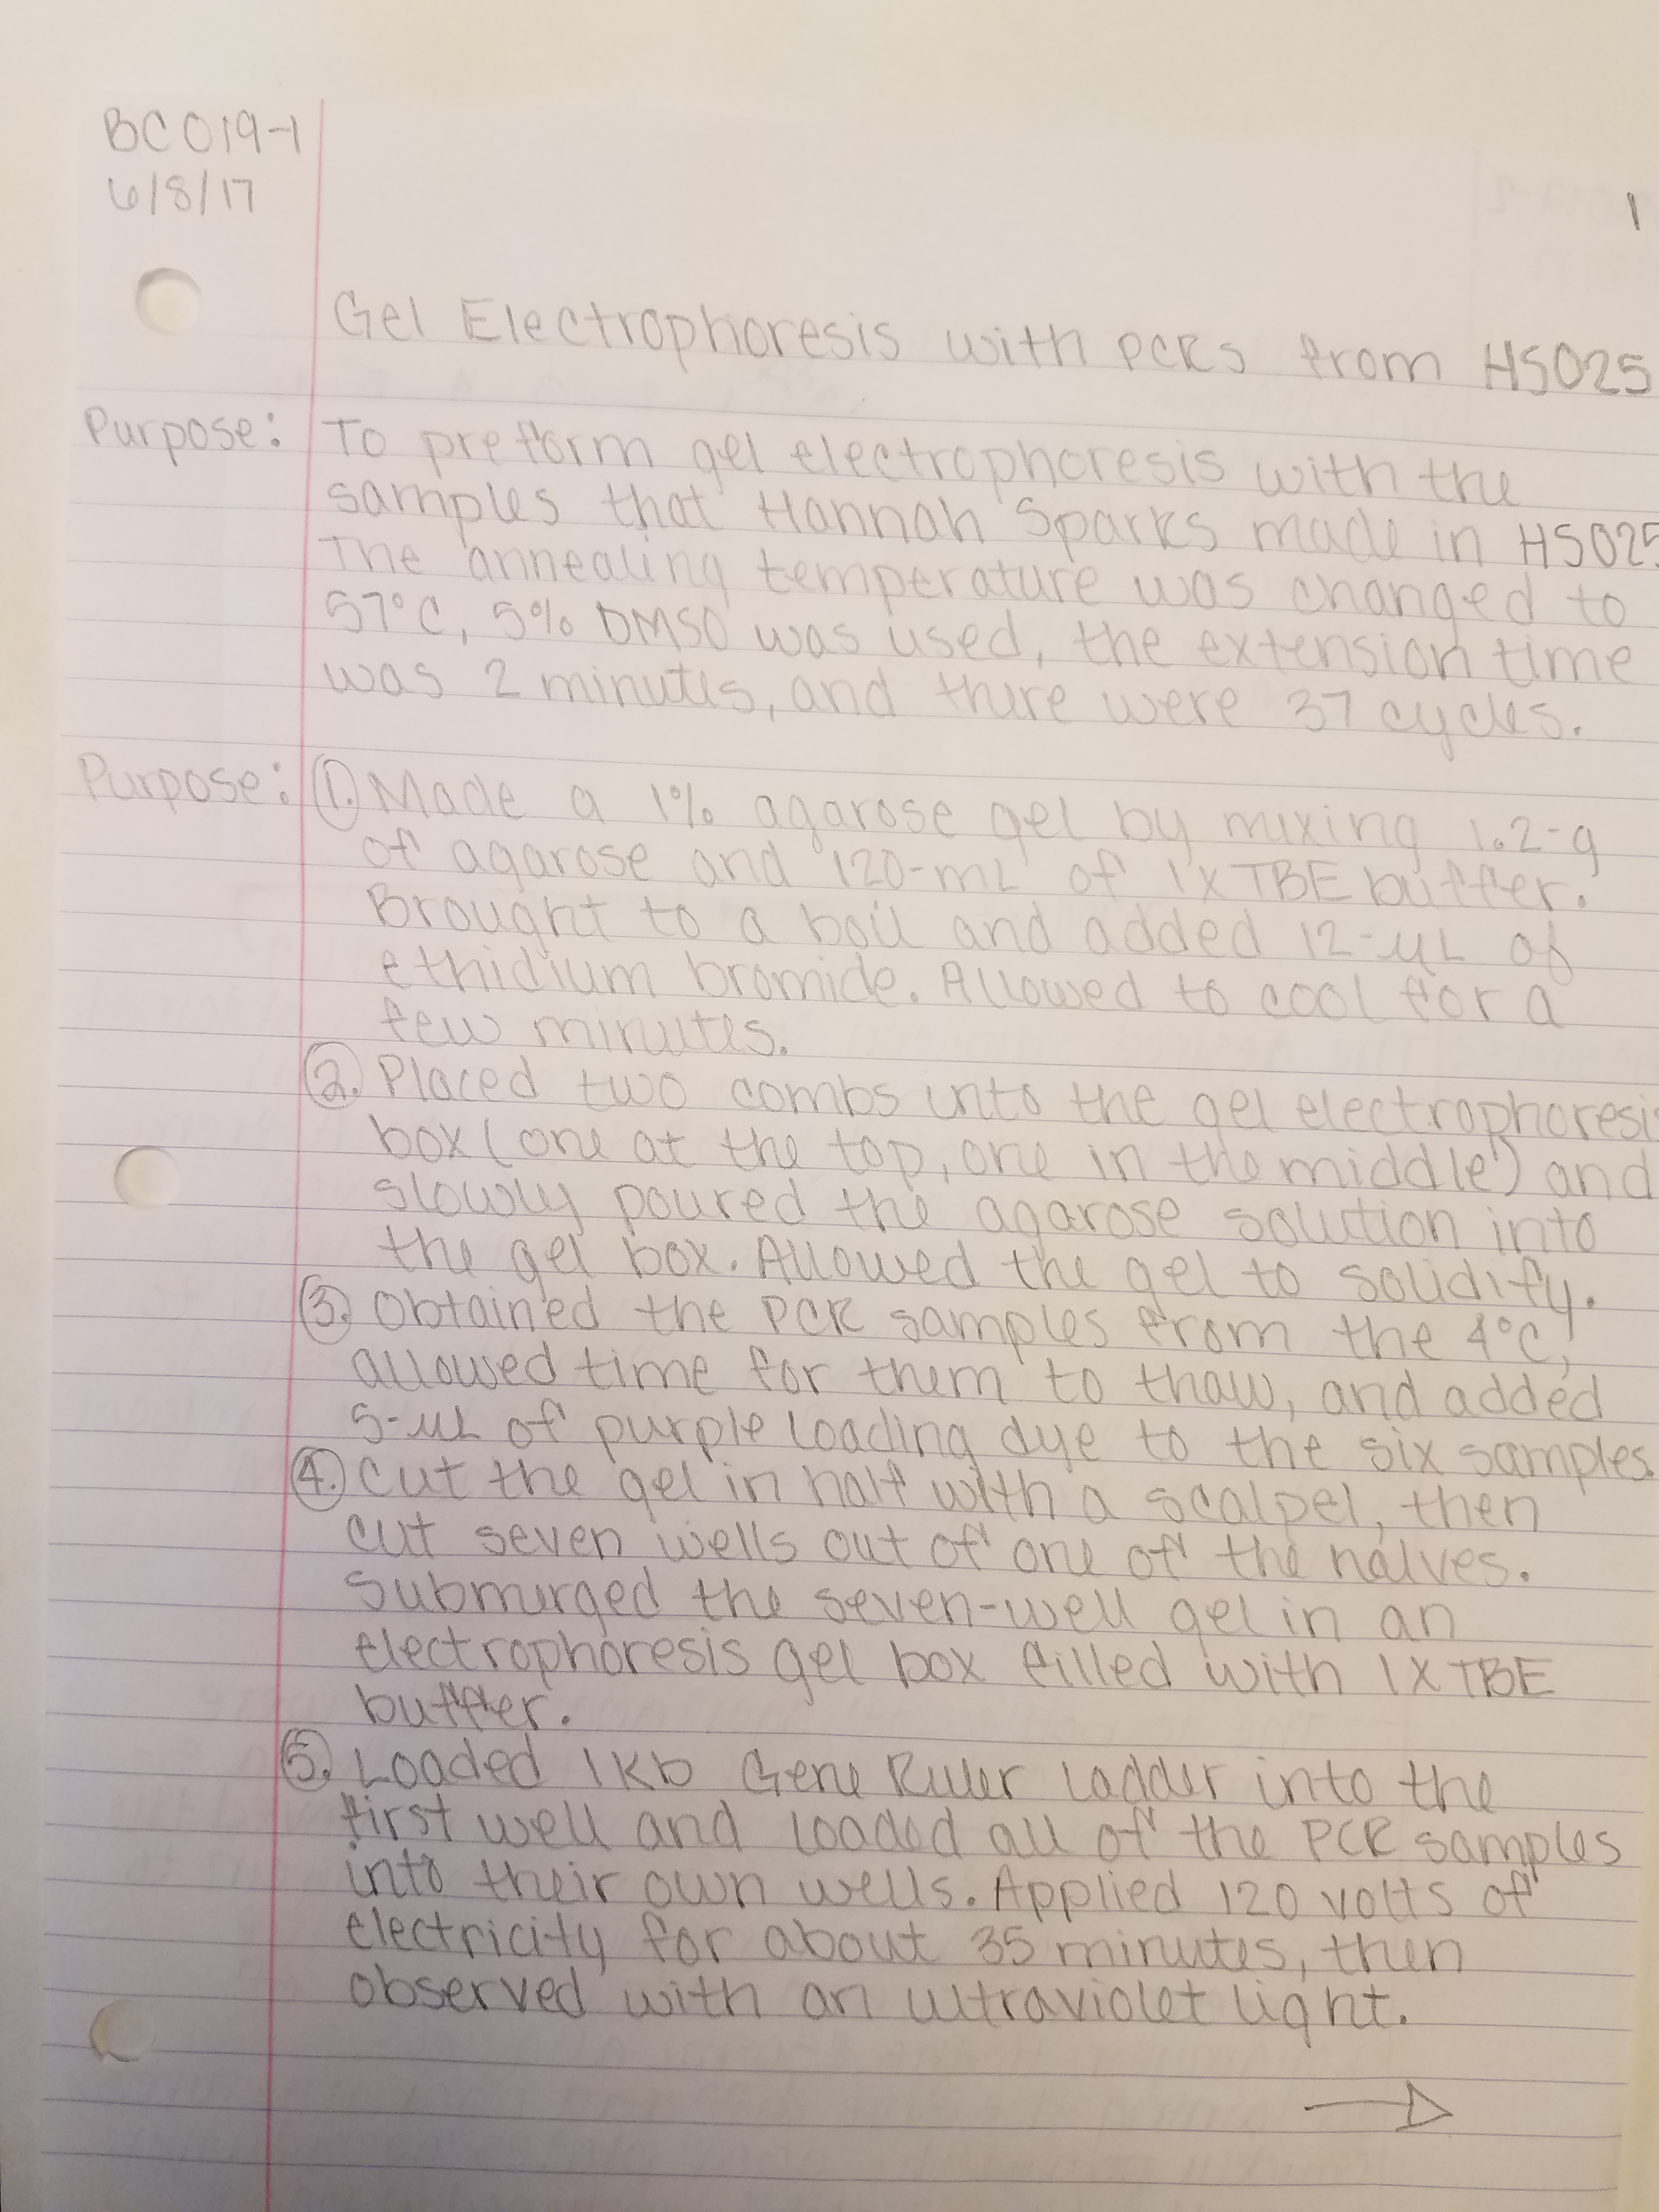 BC019-1
6/8/17
1
Gel Electrophoresis with PCRs from HS025
Purpose: To preform gel electrophoresis with the
samples that Hannah Sparks made in HS025
The annealing temperature was changed to
57°C, 5% DMSO was used, the extension time
was 2 minutes, and there were 37 cycles.
Purpose: 1. Made a 1% agarose gel by mixing 1.2-g
of agarose and 120-mL of 1x TBE buffer.
Brought to a boil and added 12-uL of
ethidium bromide. Allowed to cool for a
few minutes.
2. Placed two combs into the gel electrophoresis
box (one at the top, one in the middle) and
slowly poured the agarose solution into
the gel box. Allowed the gel to solidify.
3. Obtained the PCR samples from the 4°C,
allowed time for them to thaw, and added
5-uL of purple loading dye to the six samples.
4. Cut the gel in half with a scalpel, then
cut seven wells out of one of the halves.
Submerged the seven-well gel in an
electrophoresis gel box filled with 1X TBE
buffer.
5. Loaded 1Kb Gene Ruler ladder into the
first well and loaded all of the PCR samples
into their own wells. Applied 120 volts of
electricity for about 35 minutes, then
observed with an ultraviolet light.